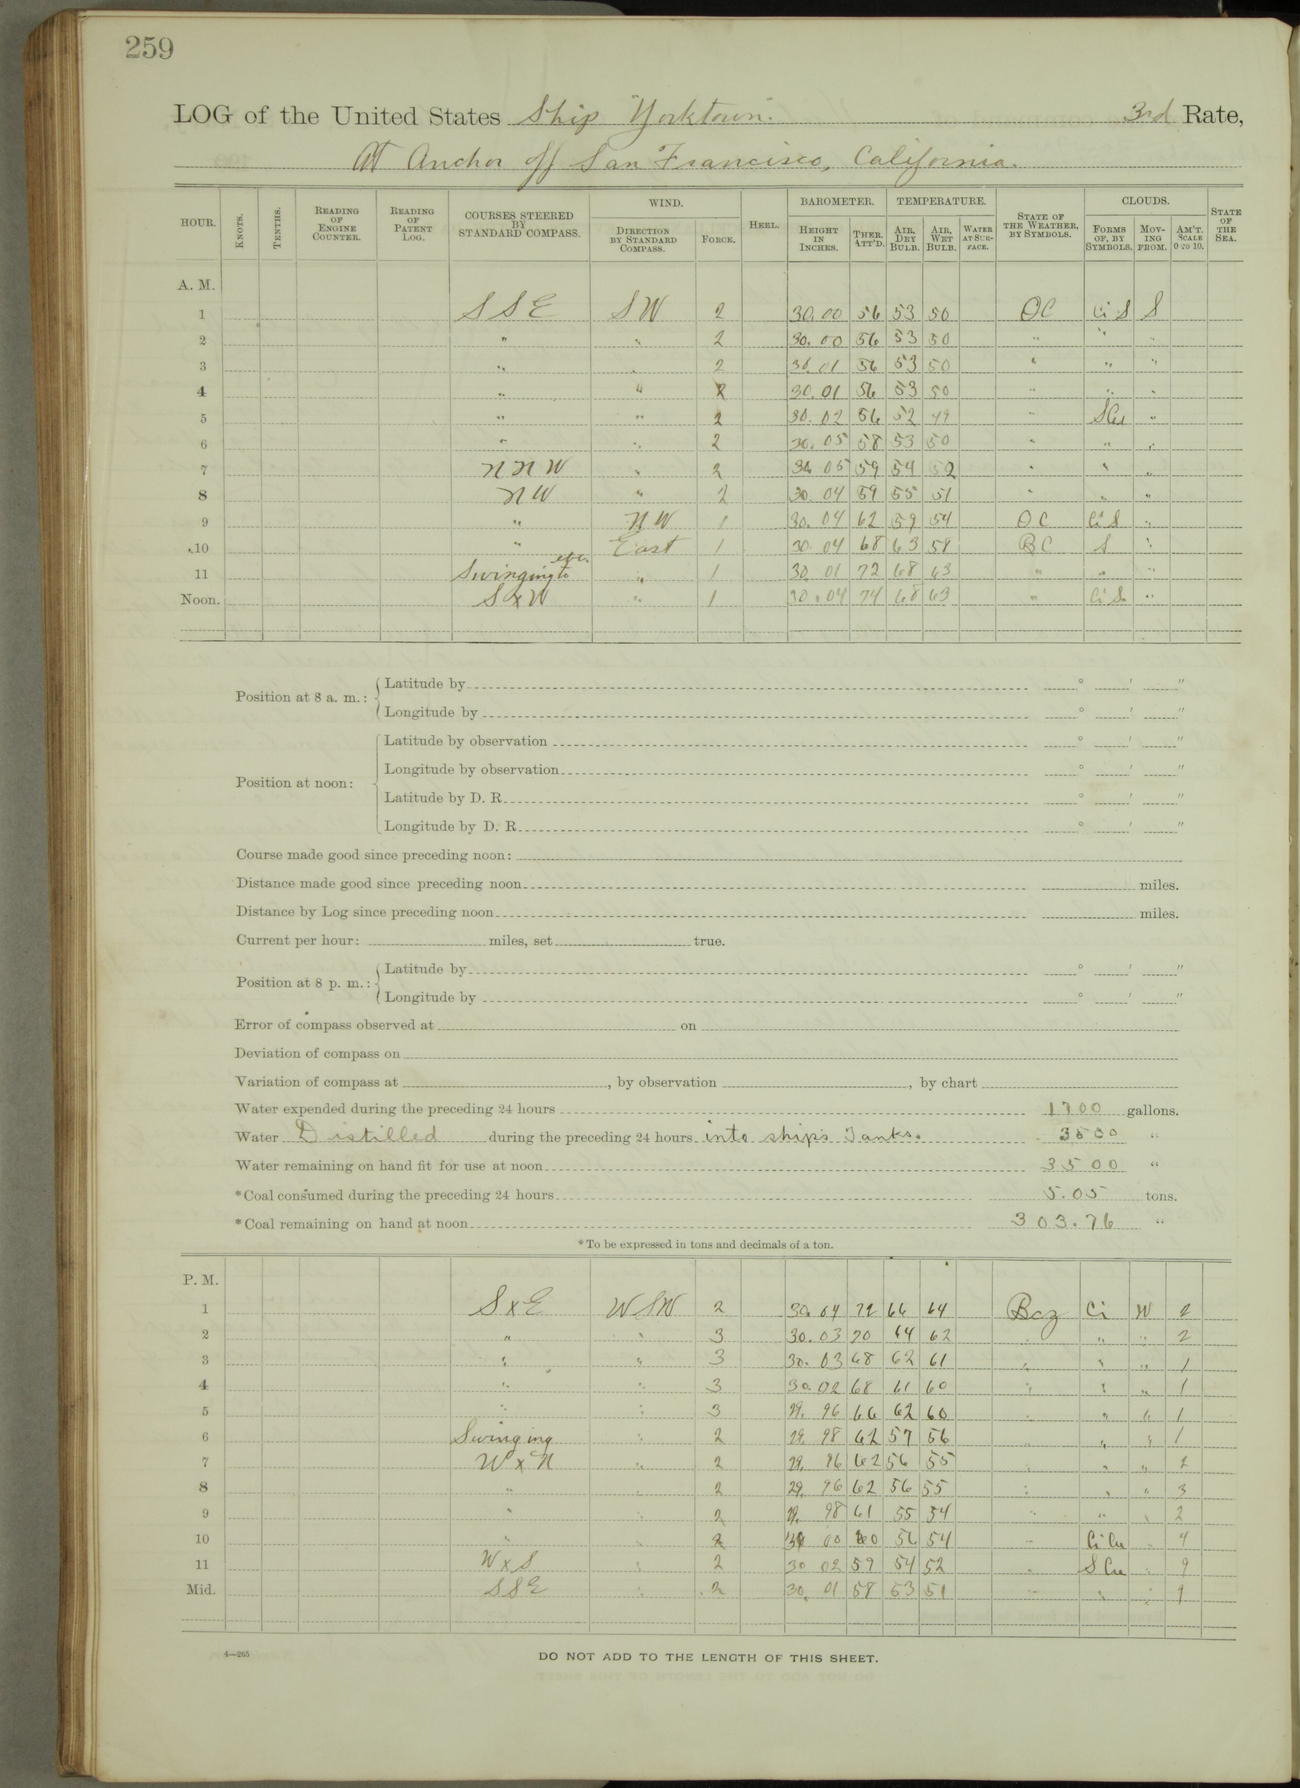 259
LOG of the United States Ship "Yorktown" 3rd Rate,
At Anchor off San Francisco, California.
HOUR. KNOTS. TENTHS. READING OF ENGINE COUNTER. READING OF PATENT LOG. COURSES STEERED BY STANDARD COMPASS. WIND. DIRECTION BY STANDARD COMPASS. FORCE. HEEL. BAROMETER. HEIGHT IN INCHES. THER. ATT'D. TEMPERATURE. AIR, DRY BULB. AIR, WET BULB. WATER AT SURFACE. STATE OF THE WEATHER, BY SYMBOLS. CLOUDS. FORMS OF, BY SYMBOLS. MOVING FROM. AM'T. SCALE 0 TO 10. STATE OF THE SEA.
A. M.
1 SSE SW 2 30.00 56 53 50 OC Ci S S
2 " " 2 30.00 56 53 50 " " "
3 " " 2 30.01 56 53 50 " " "
4 " " 2 30.01 56 53 50 " " "
5 " " 2 30.02 56 52 49 " SCu "
6 " " 2 30.05 58 53 50 " " "
7 NNW " 2 30.05 59 54 52 " " "
8 NW " 2 30 04 59 55 51 " " "
9 " NW 1 30.04 62 59 54 OC Ci S "
10 " East 1 30.04 68 63 58 BC S "
11 Swinging to " 1 30.01 72 68 63 " " "
Noon. SxW " 1 30.04 74 68 63 " Ci S "
Position at 8 a. m.: Latitude by ° ′ ″
Longitude by ° ′ ″
Position at noon: Latitude by observation ° ′ ″
Longitude by observation ° ′ ″
Latitude by D. R. ° ′ ″
Longitude by D. R. ° ′ ″
Course made good since preceding noon:
Distance made good since preceding noon miles.
Distance by Log since preceding noon miles.
Current per hour: miles, set true.
Position at 8 p. m.: Latitude by ° ′ ″
Longitude by ° ′ ″
Error of compass observed at on
Deviation of compass on
Variation of compass at , by observation , by chart
Water expended during the preceding 24 hours 1700 gallons.
Water Distilled during the preceding 24 hours into ships Tanks. "
Water remaining on hand fit for use at noon 3500 "
*Coal consumed during the preceding 24 hours 5.05 tons.
*Coal remaining on hand at noon 303.76 "
*To be expressed in tons and decimals of a ton.
P. M.
1 SxE WSW 2 30.04 72 66 64 Bcz Ci W 2
2 " " 3 30.03 70 64 62 " " " 2
3 " " 3 30.03 68 62 61 " " " 1
4 " " 3 30.02 68 61 60 " " " 1
5 " " 3 29.96 66 62 60 " " " 1
6 Swinging " 2 29.98 62 57 56 " " " 1
7 WxN " 2 29.96 62 56 55 " " " 2
8 " " 2 29.96 62 56 55 " " " 3
9 " " 2 29.98 61 55 54 " " " 2
10 " " 2 30 00 60 56 54 " Ci Cu " 4
11 WxS " 2 30 02 59 54 52 " S Cu " 9
Mid. SSE " 2 30.01 58 53 51 " " " 9
4—265
DO NOT ADD TO THE LENGTH OF THIS SHEET.